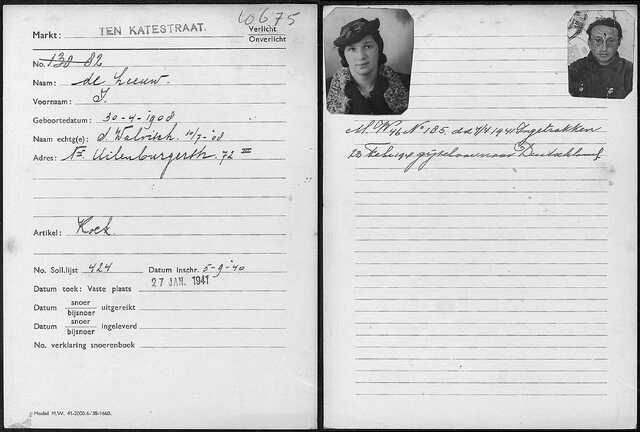 10675
Markt: TEN KATESTRAAT. Verlicht
Onverlicht
No. 130 82
Naam: de Leeuw.
Voornaam: J.
Geboortedatum: 30-4-1908
Naam echtg(e): d. Walvisch. 10/7-'08
Adres: Nw. Uilenburgerstr. 72 III
Artikel: Koek.
No. Soll.lijst 424 Datum Inschr. 5-9-'40
Datum toek: Vaste plaats 27 JAN. 1941
Datum snoer
bijsnoer uitgereikt
Datum snoer
bijsnoer ingeleverd
No. verklaring snoerenboek
Model M.W. 41-2000-6-'38-1660.
M.W. 46 No 185. dd 1941 Ingetrokken
23 Febr. 1941 Duitschland